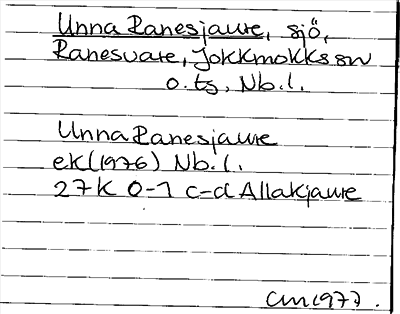 Unna Ranesjaure, sjö,
Ranesvare, Jokkmokks sn
o. ts, Nb. l.
Unna Ranesjaure
ek (1976) Nb. l.
27K 0-1 c-d Allakjaure
CM 1977.